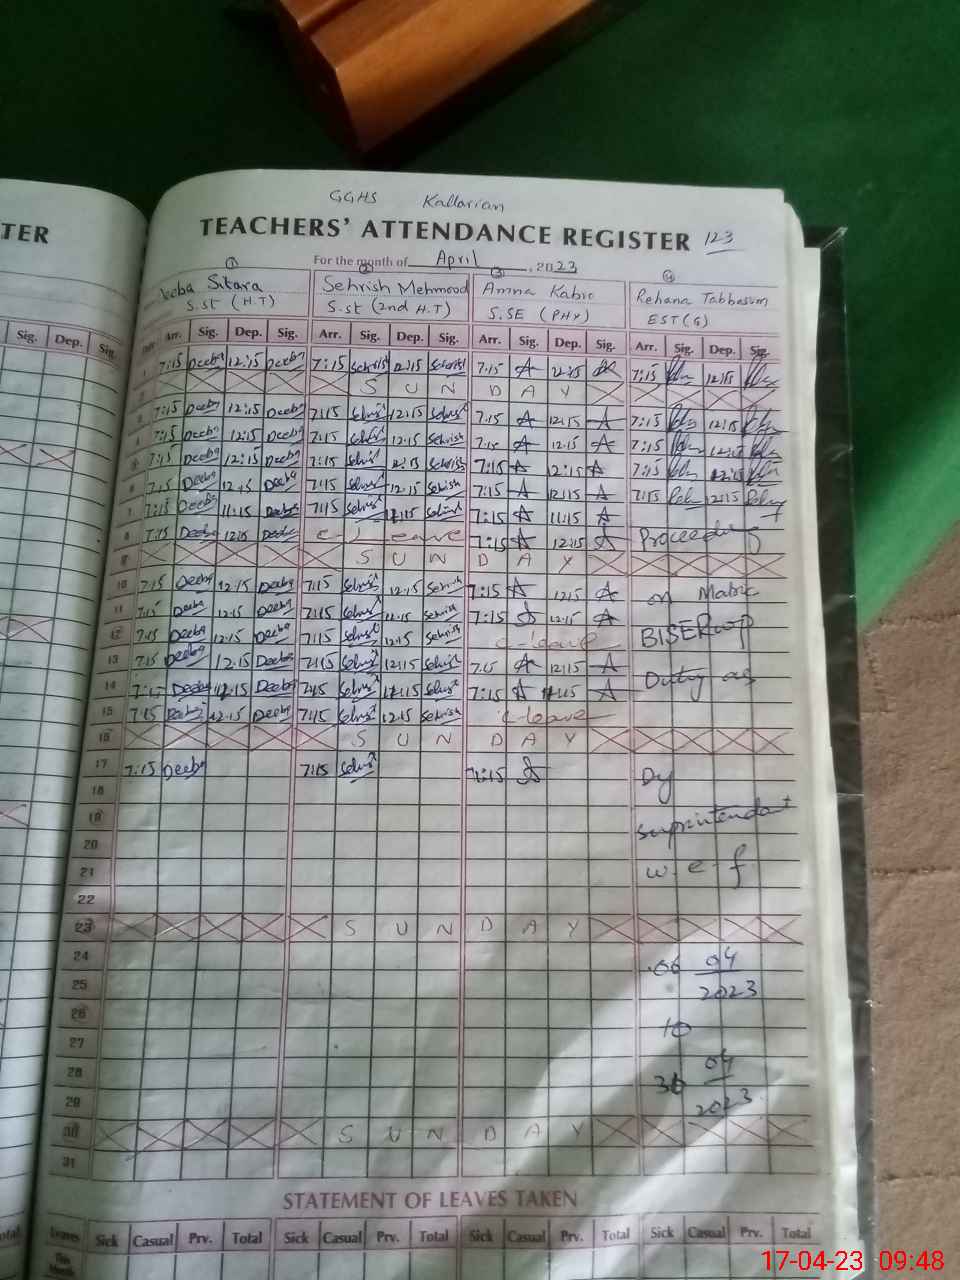 GGHS Kallarian
TER
TEACHERS' ATTENDANCE REGISTER 123
For the month of April, 2023
1 2 3 4
Sitara Sehrish Mehmood Amna Kabir Rehana Tabbasum
S.St (H.T) S.St (2nd H.T) S.SE (PHY) EST(G)
Sig. Dep. Sig. Date Arr. Sig. Dep. Sig. Arr. Sig. Dep. Sig. Arr. Sig. Dep. Sig. Arr. Sig. Dep. Sig.
1 7:15 Deeba 12:15 Deeba 7:15 Sehrish 12:15 Sehrish 7:15 A 12:15 7:15 12:15
SUNDAY
3 7:15 Deeba 12:15 Deeba 7:15 12:15 7:15 A 12:15 A 7:15 12:15
4 7:15 Deeba 12:15 Deeba 7:15 12:15 Sehrish 7:15 A 12:15 A 7:15
5 7:15 Deeba 12:15 Deeba 7:15 12:15 Sehrish 7:15 A 12:15 A 7:15 12:15
6 7:15 Deeba 12:15 Deeba 7:15 12:15 Sehrish 7:15 A 12:15 A 7:15 12:15
7 7:15 Deeba 11:15 Deeba 7:15 11:15 7:15 A 11:15 A
8 7:15 Deeba 12:15 Deeba C-leave 7:15 A 12:15 A Proceeding
9 SUNDAY
10 7:15 Deeba 12:15 Deeba 7:15 12:15 Sehrish 7:15 A 12:15 A on Matric
11 7:15 Deeba 12:15 Deeba 7:15 12:15 Sehrish 7:15 A 12:15 A
12 7:15 Deeba 12:15 Deeba 7:15 12:15 Sehrish C-leave BISERwp
13 7:15 Deeba 12:15 Deeba 7:15 12:15 7:15 A 12:15 A
14 7:15 Deeba 11:15 Deeba 7:15 11:15 7:15 A 11:15 A Duty as
15 7:15 Deeba 12:15 Deeba 7:15 12:15 Sehrish C-leave
16 SUNDAY
17 7:15 Deeba 7:15 7:15 A Dy
18
19 suprintendant
20
21 w.e.f
22
23 SUNDAY
24 06 04
25 2023
26
27 to
28 04
29 30 2023
30 SUNDAY
31
STATEMENT OF LEAVES TAKEN
Total Leaves Sick Casual Prv. Total Sick Casual Prv. Total Sick Casual Prv. Total Sick Casual Prv. Total
This Month
17-04-23 09:48